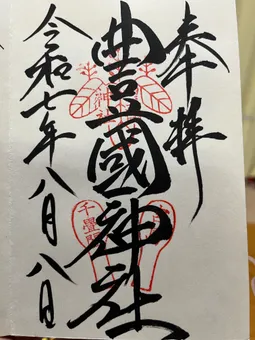 奉拝
豊國神社
千畳閣
令和七年八月八日